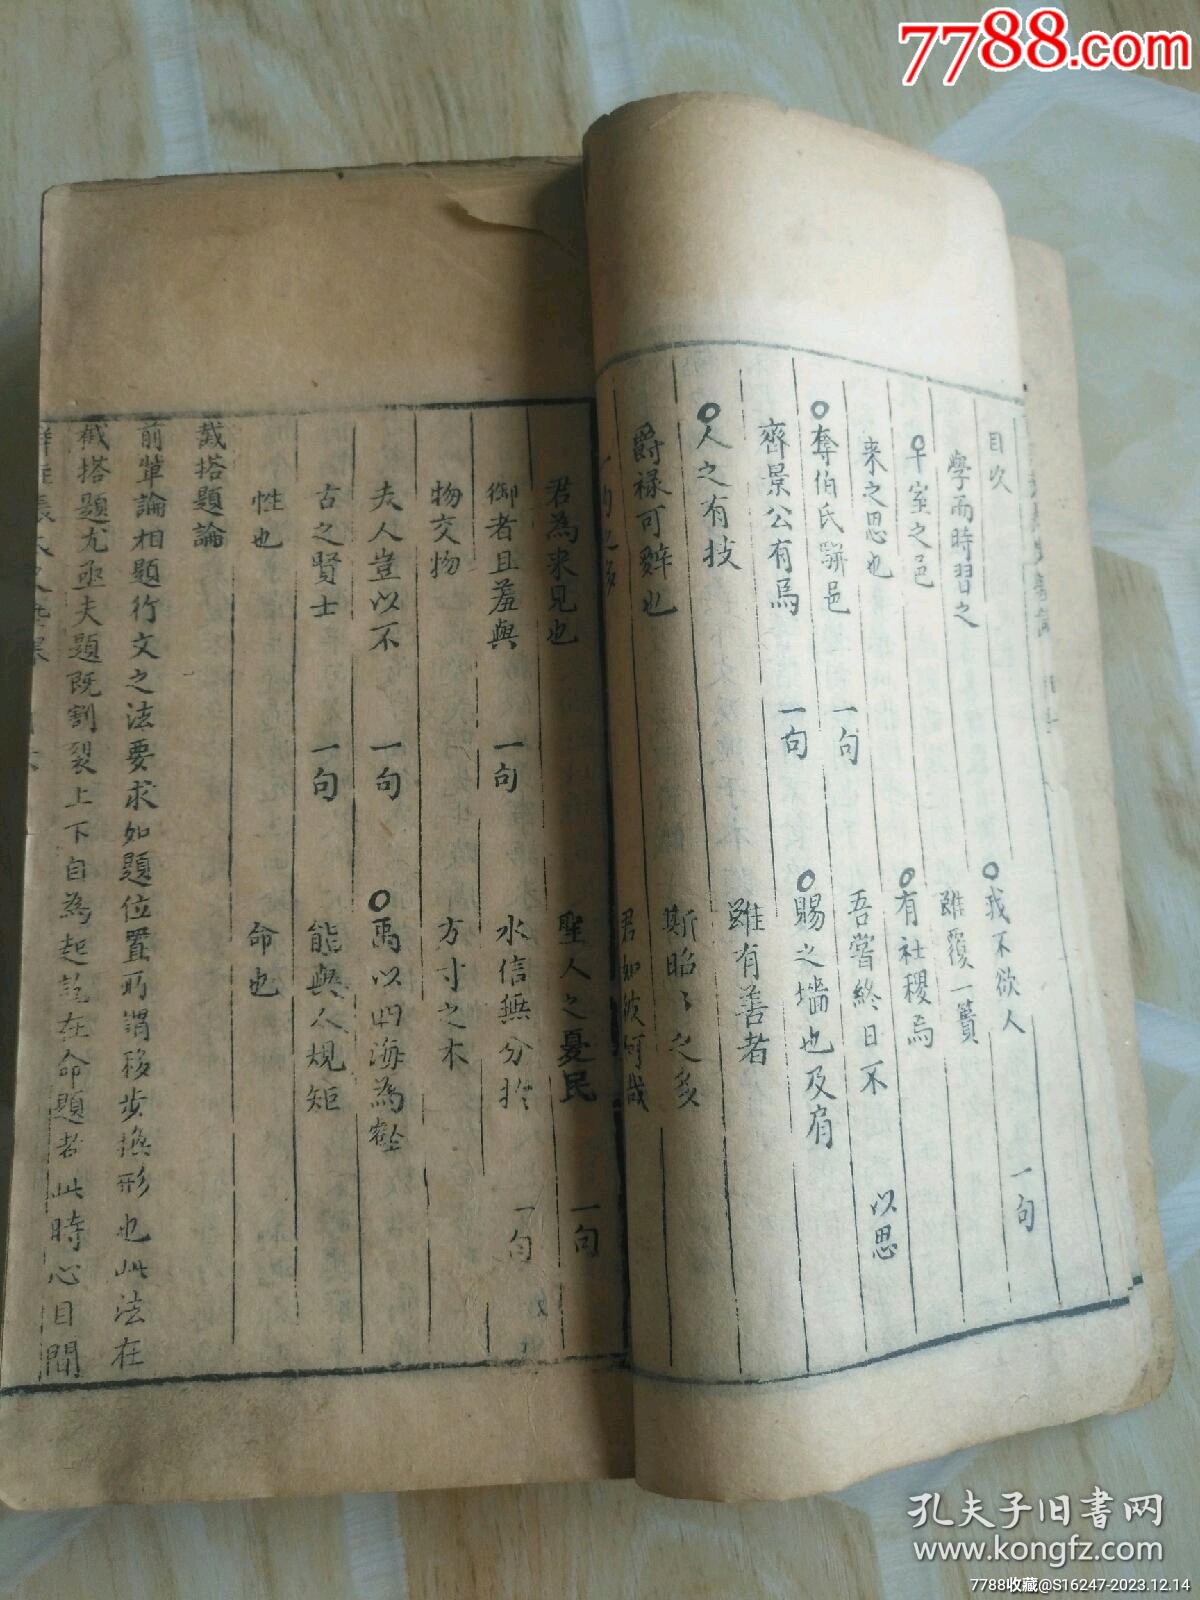 7788.com
目次
學而時習之
我不欲人
一句
○室之邑
雖覆一簣
來之思也
○有社稷焉
○奪伯氏駢邑
一句
吾嘗終日不
以思
齊景公有馬
一句
○賜之墻也及肩
○人之有技
雖有善者
爵祿可辭也
斯昭〻之多
君如彼何哉
君為來見也
聖人之憂民
一句
御者且羞與
一句
水信無分於
一句
物交物
方寸之木
夫人豈以不
一句
○禹以四海為壑
古之賢士
一句
能與人規矩
性也
命也
截搭題論
前輩論相題行文之法要求如題位置所謂移步換形也此法在
截搭題尤亟夫題既割裂上下自為起訖在命題者此時心目間
孔夫子旧书网
www.kongfz.com
7788收藏@S16247-2023.12.14